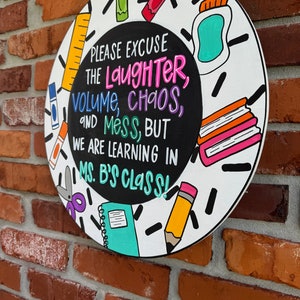 PLEASE EXCUSE
THE LAUGHTER,
VOLUME, CHAOS,
AND MESS, BUT
WE ARE LEARNING IN
MS. B'S CLASS!